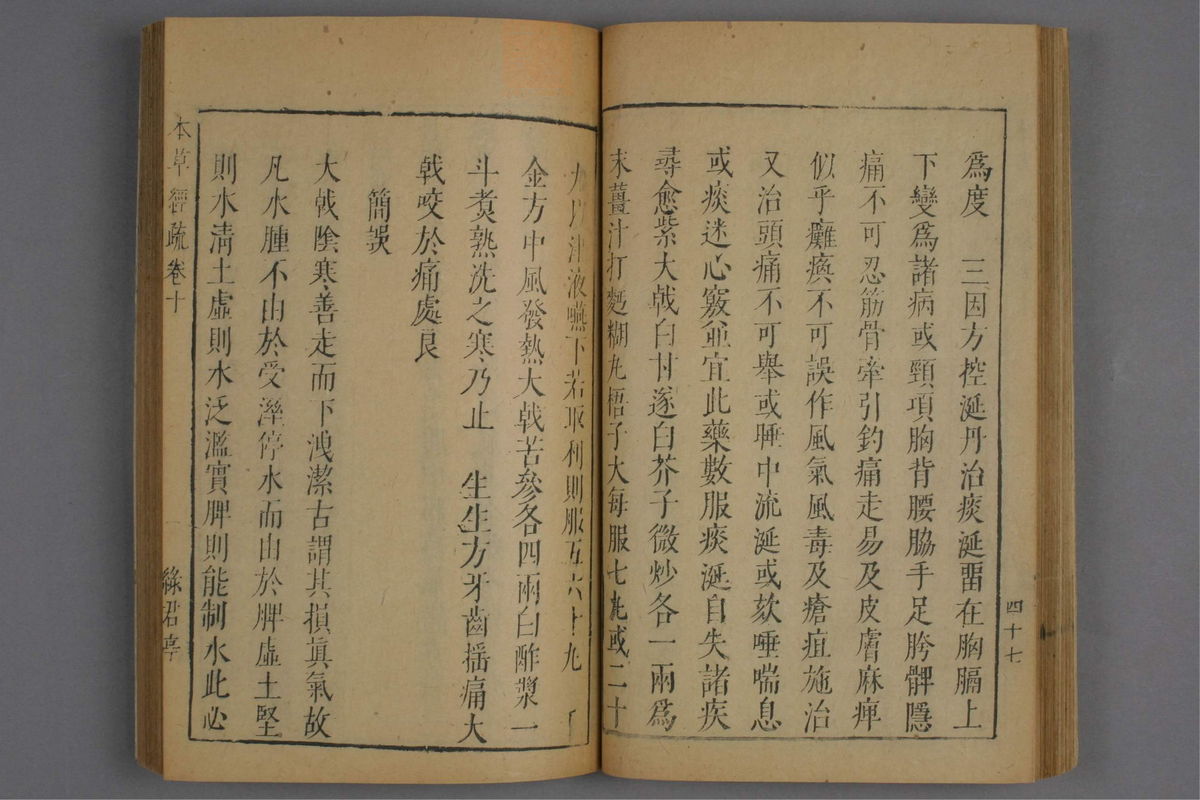 爲度　三因方控涎丹治痰涎畱在胸膈上
下變爲諸病或頸項胸背腰脇手足胯髀隱
痛不可忍筋骨牽引釣痛走易及皮膚麻痺
似乎癱瘓不可誤作風氣風毒及瘡疽施治
又治頭痛不可舉或睡中流涎或欬唾喘息
或痰迷心竅並宜此藥數服痰涎自失諸疾
尋愈紫大戟白甘遂白芥子微炒各一兩爲
末薑汁打麪糊丸梧子大每服七丸或二十
丸以津液嚥下若取利則服五六十丸
金方中風發熱大戟苦參各四兩白酢漿一
斗煑熟洗之寒乃止　生生方牙齒揺痛大
戟咬於痛處良
簡誤
大戟陰寒善走而下洩潔古謂其損眞氣故
凡水腫不由於受溼停水而由於脾虛土堅
則水淸土虛則水泛濫實脾則能制水此必
四十七
本草經疏卷十
綠君亭